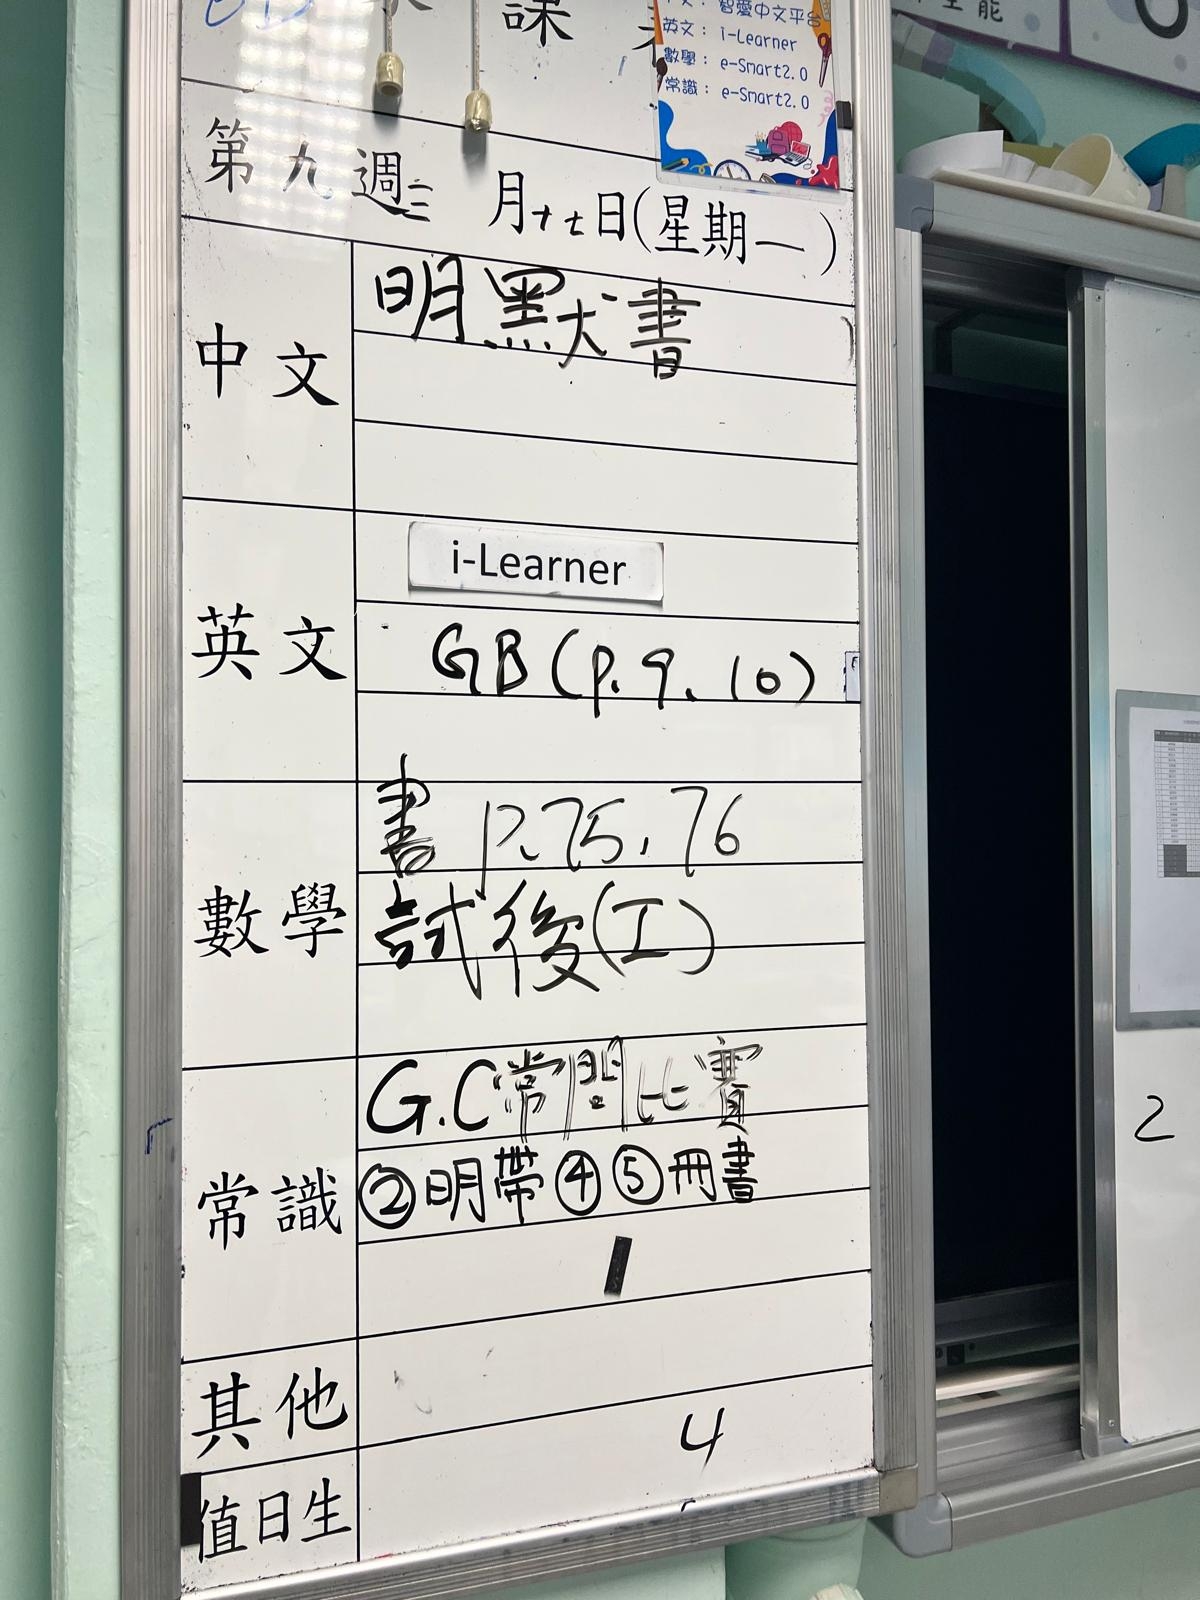 課
中文：智愛中文平台
英文：i-Learner
數學：e-Smart2.0
常識：e-Smart2.0
第九週三月十七日(星期一)
中文
明默書
英文
i-Learner
GB(p.9、10)
數學
書 p.75、76
試後(I)
常識
G.C常問比賽
②明帶④⑤冊書
其他
4
值日生
2